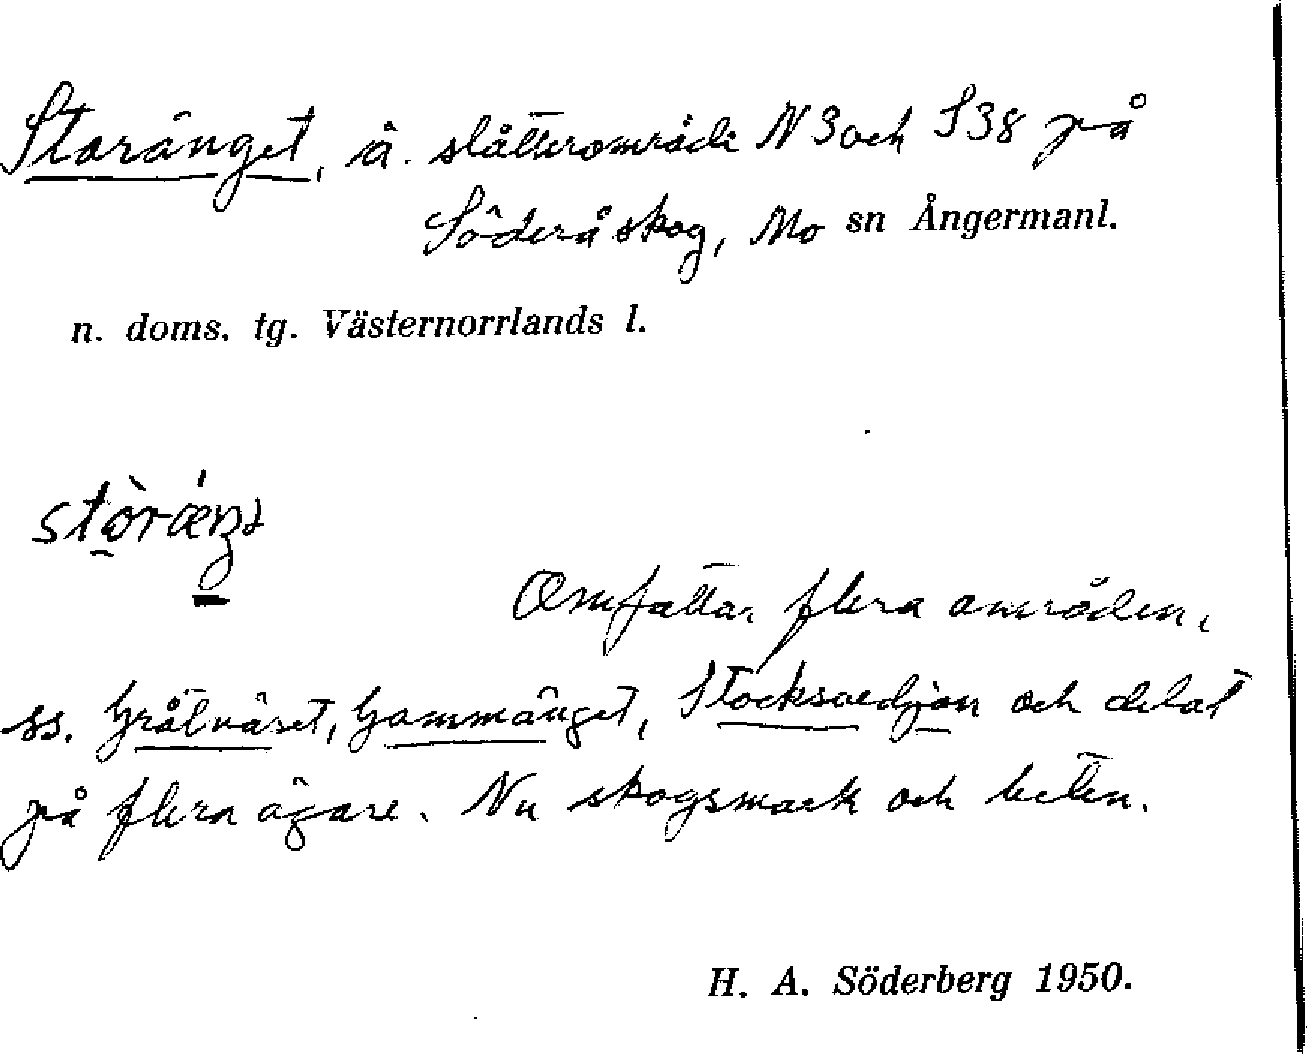 Storänget, ä. slåtterområde N 3 och S 38 på
Söderå skog, Mo sn Ångermanl.
n. doms. tg. Västernorrlands l.
Omfattar flera områden,
ss. Grålnäset, Gammänget, Stocksvedjan och delat
på flera ägare. Nu skogsmark och beten.
H. A. Söderberg 1950.